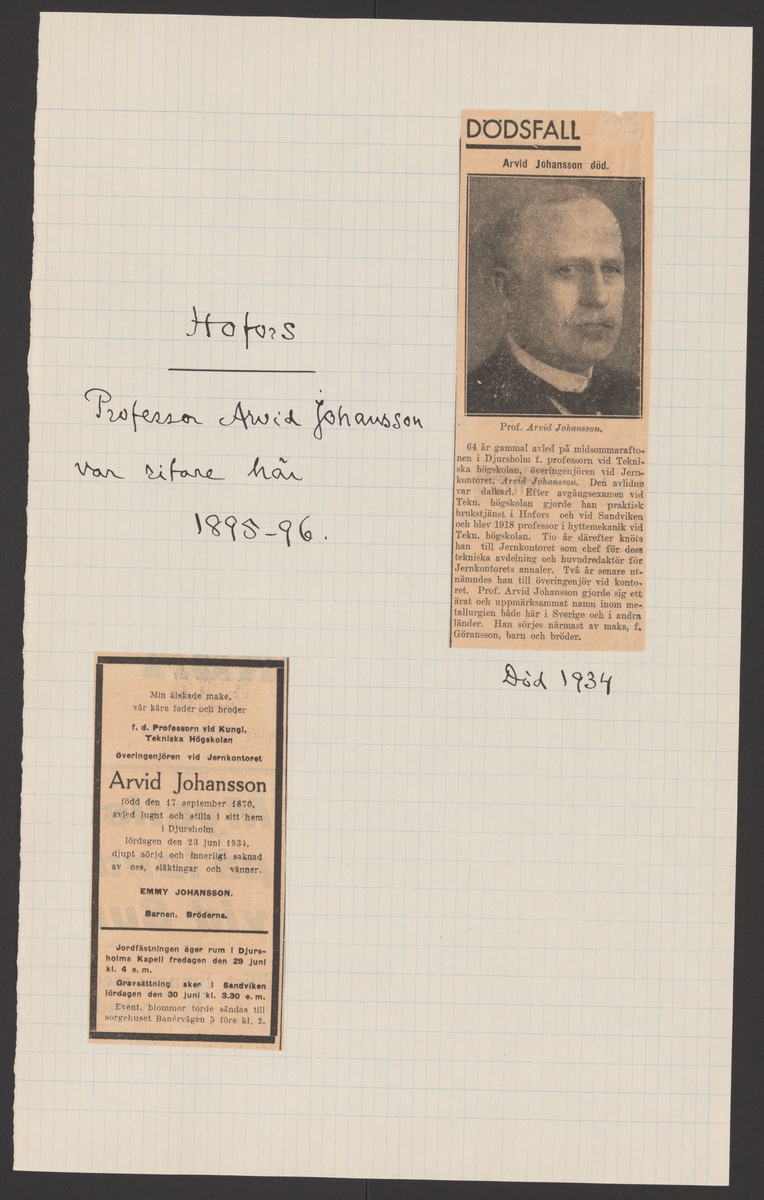 DÖDSFALL
Arvid Johansson död.
Prof. Arvid Johansson.
64 år gammal avled på midsommarafto-
nen i Djursholm f. professorn vid Tekni-
ska högskolan, överingenjören vid Jern-
kontoret, Arvid Johansson. Den avlidne
var dalkarl. Efter avgångsexamen vid
Tekn. högskolan gjorde han praktisk
brukstjänst i Hofors och vid Sandviken
och blev 1918 professor i hyttemekanik vid
Tekn. högskolan. Tio år därefter knöts
han till Jernkontoret som chef för dess
tekniska avdelning och huvudredaktör för
Jernkontorets annaler. Två år senare ut-
nämndes han till överingenjör vid konto-
ret. Prof. Arvid Johansson gjorde sig ett
ärat och uppmärksammat namn inom me-
tallurgien både här i Sverige och i andra
länder. Han sörjes närmast av maka, f.
Göransson, barn och bröder.
Död 1934
Hofors
Professor Arvid Johansson
var ritare här
1895-96.
Min älskade make,
vår käre fader och broder
f. d. Professorn vid Kungl.
Tekniska Högskolan
överingenjören vid Jernkontoret
Arvid Johansson
född den 17 september 1870,
avled lugnt och stilla i sitt hem
i Djursholm
lördagen den 23 juni 1934,
djupt sörjd och innerligt saknad
av oss, släktingar och vänner.
EMMY JOHANSSON.
Barnen. Bröderna.
Jordfästningen äger rum i Djurs-
holms Kapell fredagen den 29 juni
kl. 4 e. m.
Gravsättning sker i Sandviken
lördagen den 30 juni kl. 3.30 e. m.
Event. blommor torde sändas till
sorgehuset Banérvägen 5 före kl. 2.